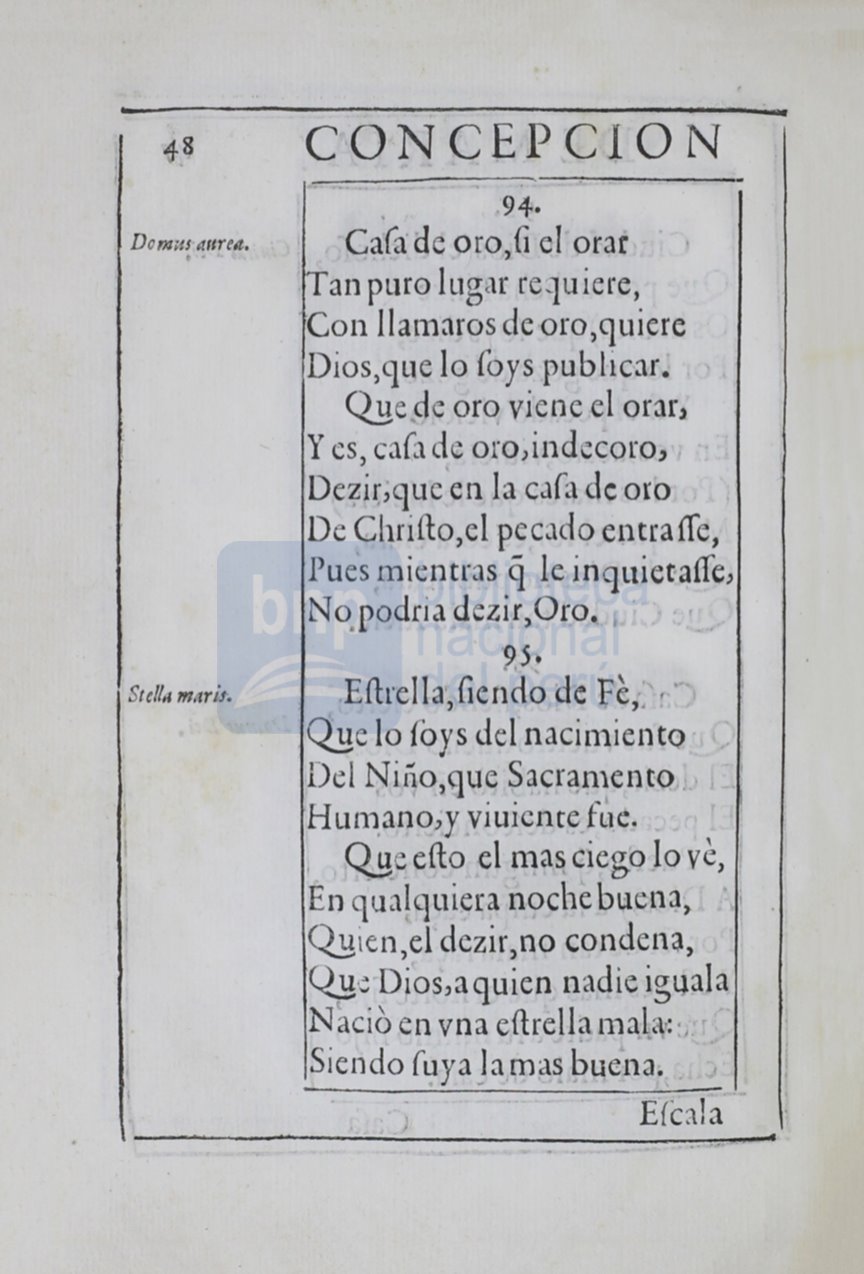 48 CONCEPCION
94.
Domus aurea.
Caſa de oro,ſi el orar
Tan puro lugar requiere,
Con llamaros de oro,quiere
Dios,que lo ſoys publicar.
Que de oro viene el orar,
Y es, caſa de oro,indecoro,
Dezir,que en la caſa de oro
De Chriſto,el pecado entraſſe,
Pues mientras q̃ le inquietaſſe,
No podria dezir,Oro.
95.
Stella maris.
Eſtrella,ſiendo de Fè,
Que lo ſoys del nacimiento
Del Niño,que Sacramento
Humano,y viuiente fue.
Que eſto el mas ciego lo vè,
En qualquiera noche buena,
Quien,el dezir,no condena,
Que Dios,a quien nadie iguala
Naciò en vna eſtrella mala:
Siendo ſuya la mas buena.
Eſcala
bnp biblioteca
nacional
del perú